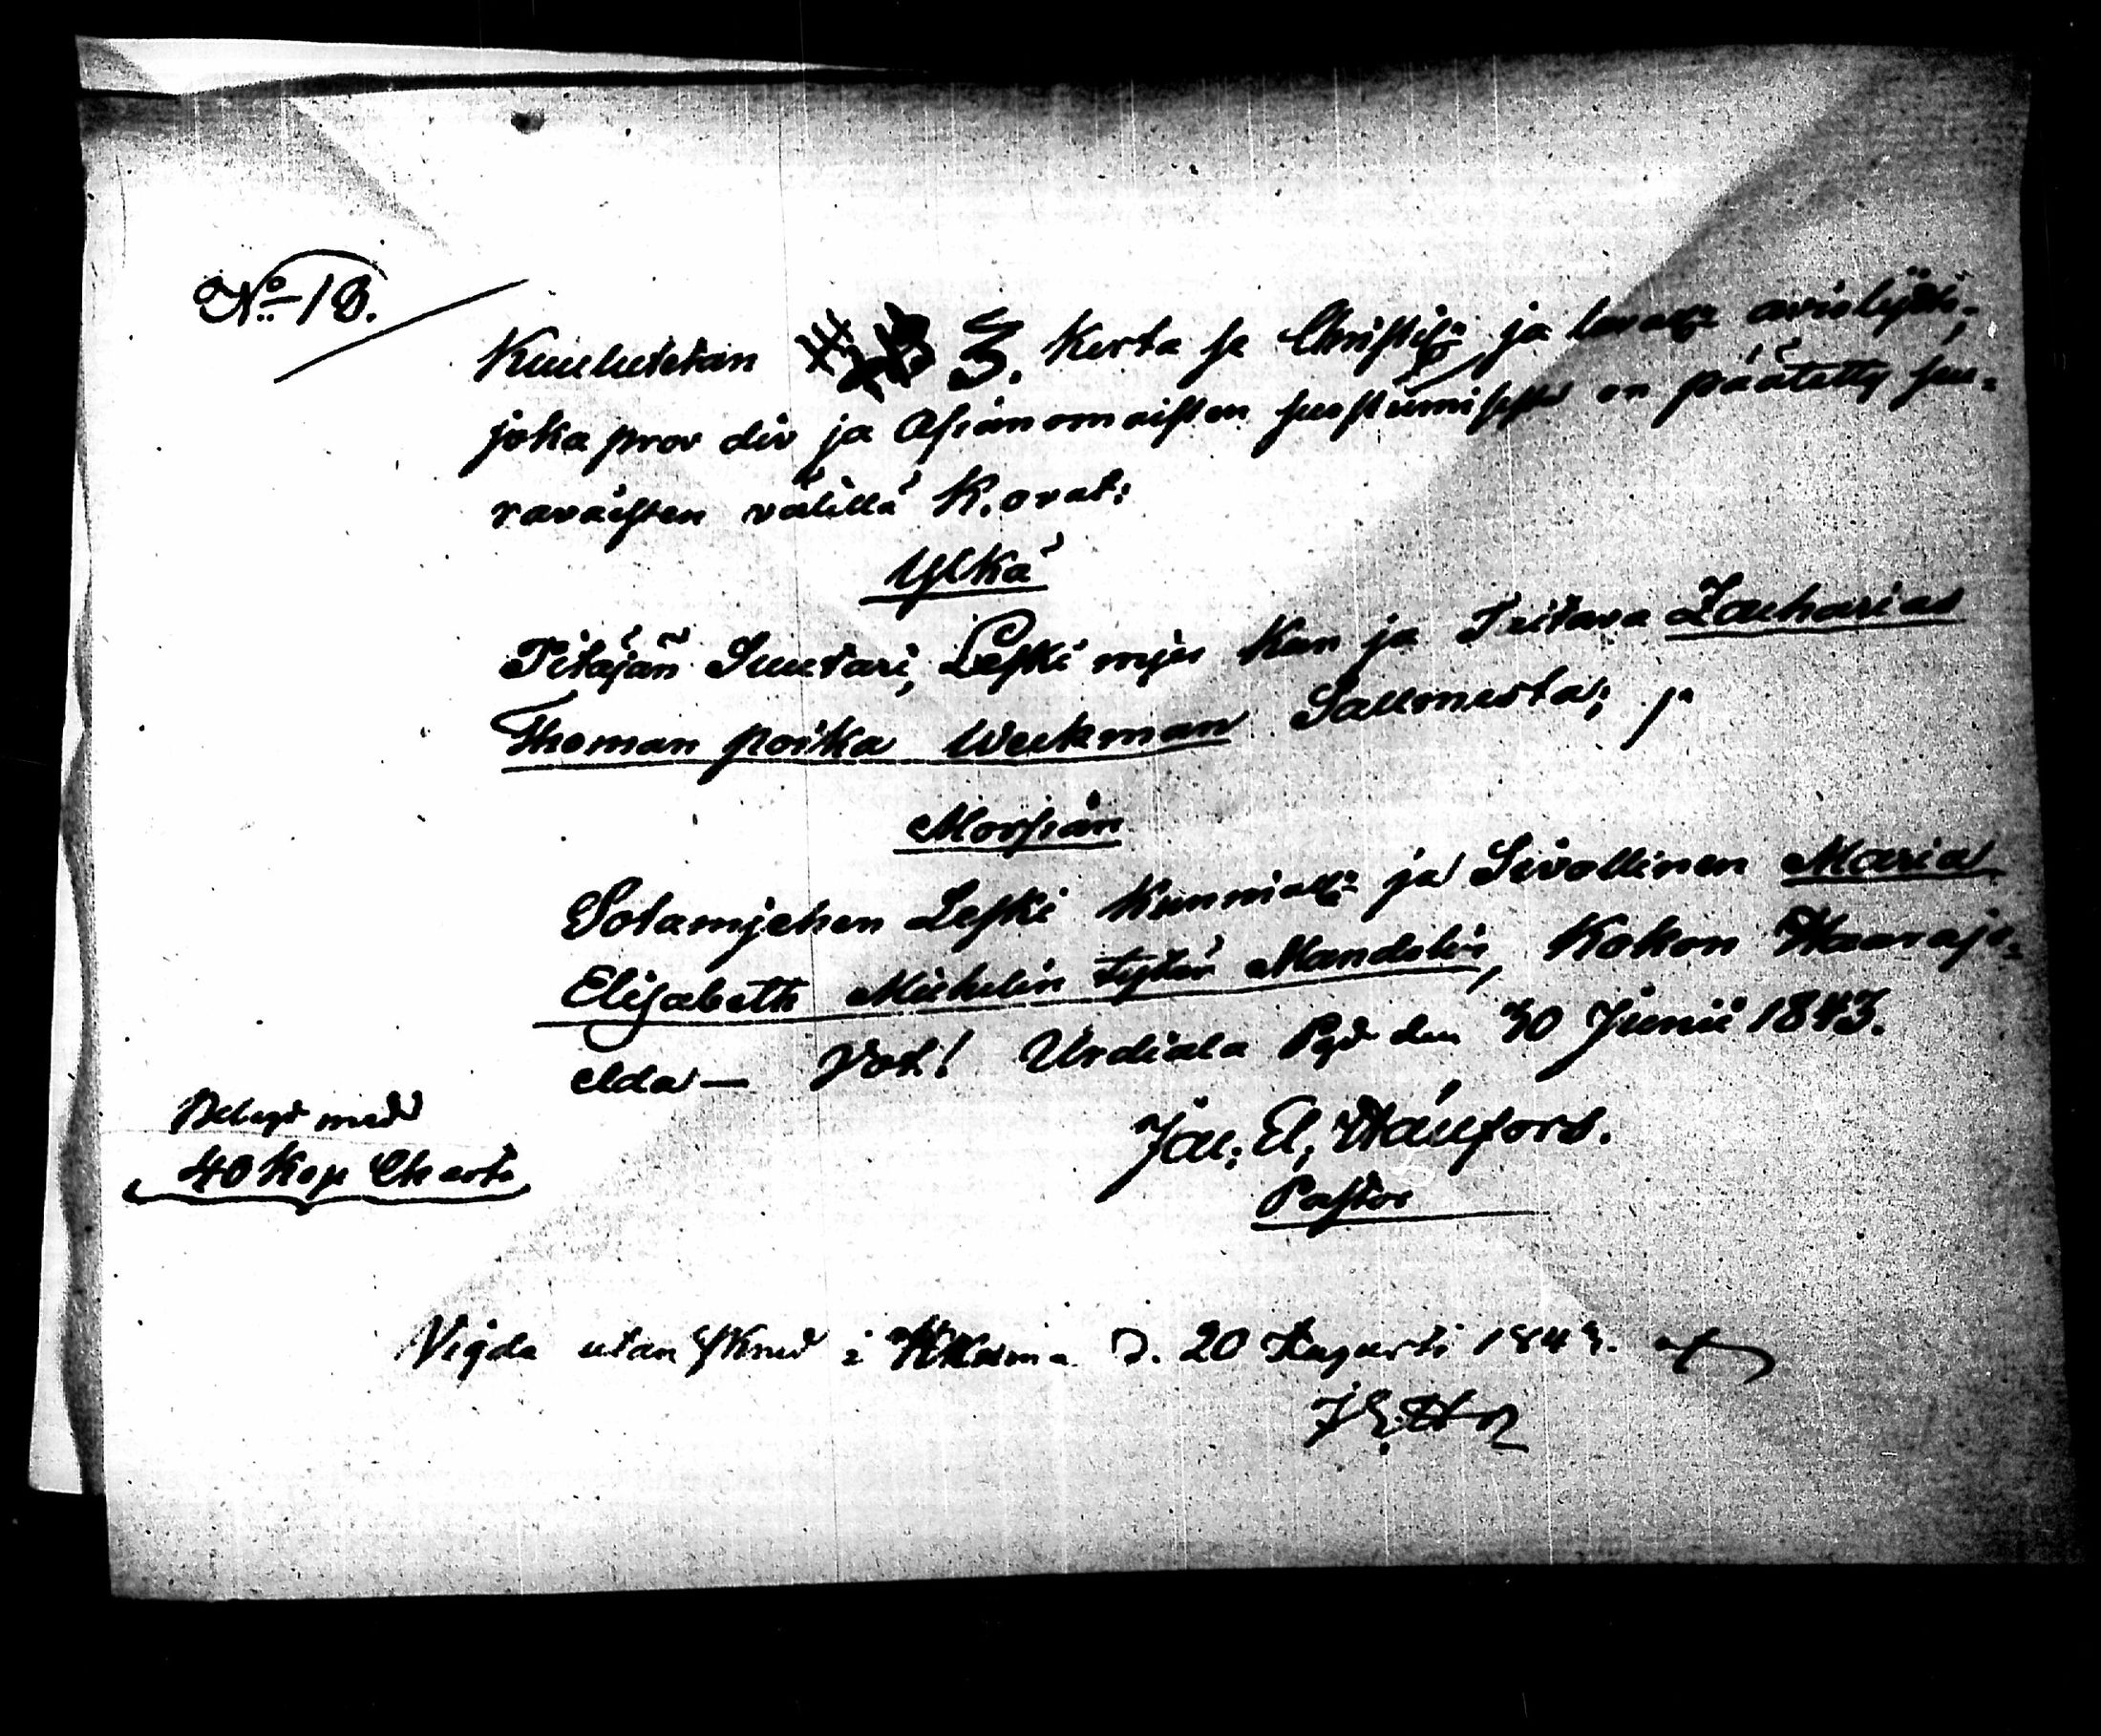 No 18.
Kuulutetan 3. kerta se Christil: ja lavall: avioliitto;
joka prov div ja Asianomaisten suostumisesta on päätetty seu-
ravaisten välillä K. ovat:
Ylkä
Pitäjän Suutari, Leski mjes Kun ja Taitava Zacharias
Thoman poika Weckman Salmesta; ja
Morsian
Sotamjehen Leski Kunniall: ja Siivollinen Maria
Elisabeth Michelin tytär Mandelin, Kokon Haaraje-
elda — Urdiala Pgd den 30 Junii 1843.
Belagd med
40 Kop Charta
Jac; El;
Pastor
Vigda utan i D. 20 Augusti 1843. af